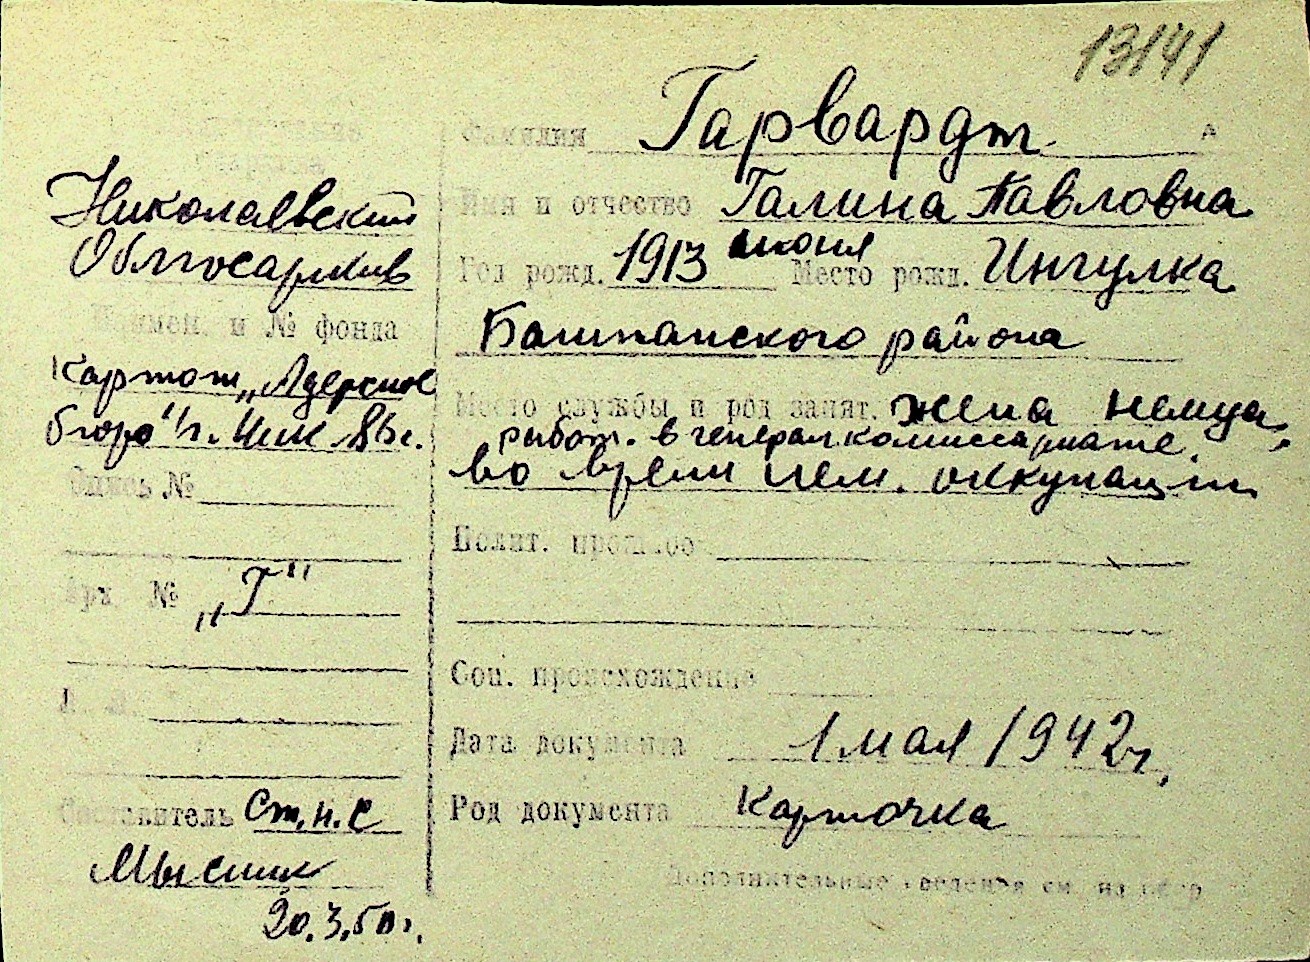 13141
Фамилия Гарвардт
Николаевский
Облгосархив
Имя и отчество Галина Павловна
Год рожд. 1913 июня Место рожд. Ингулка
Баштанского района
Наимен. и № фонда
Картот. „Адресное
бюро"
Место службы и род занят. жена немца,
работ. в генералкомиссариате.
во время нем. оккупации
Опись №
Полит. прошлое
Арх. № „Г"
Соц. происхождение
Л. Л.
Дата документа 1 мая 1942 г.
Составитель Ст. н. с
Мысник
20.3.50 г.
Род документа Карточка
Дополнительные сведения см. на обор